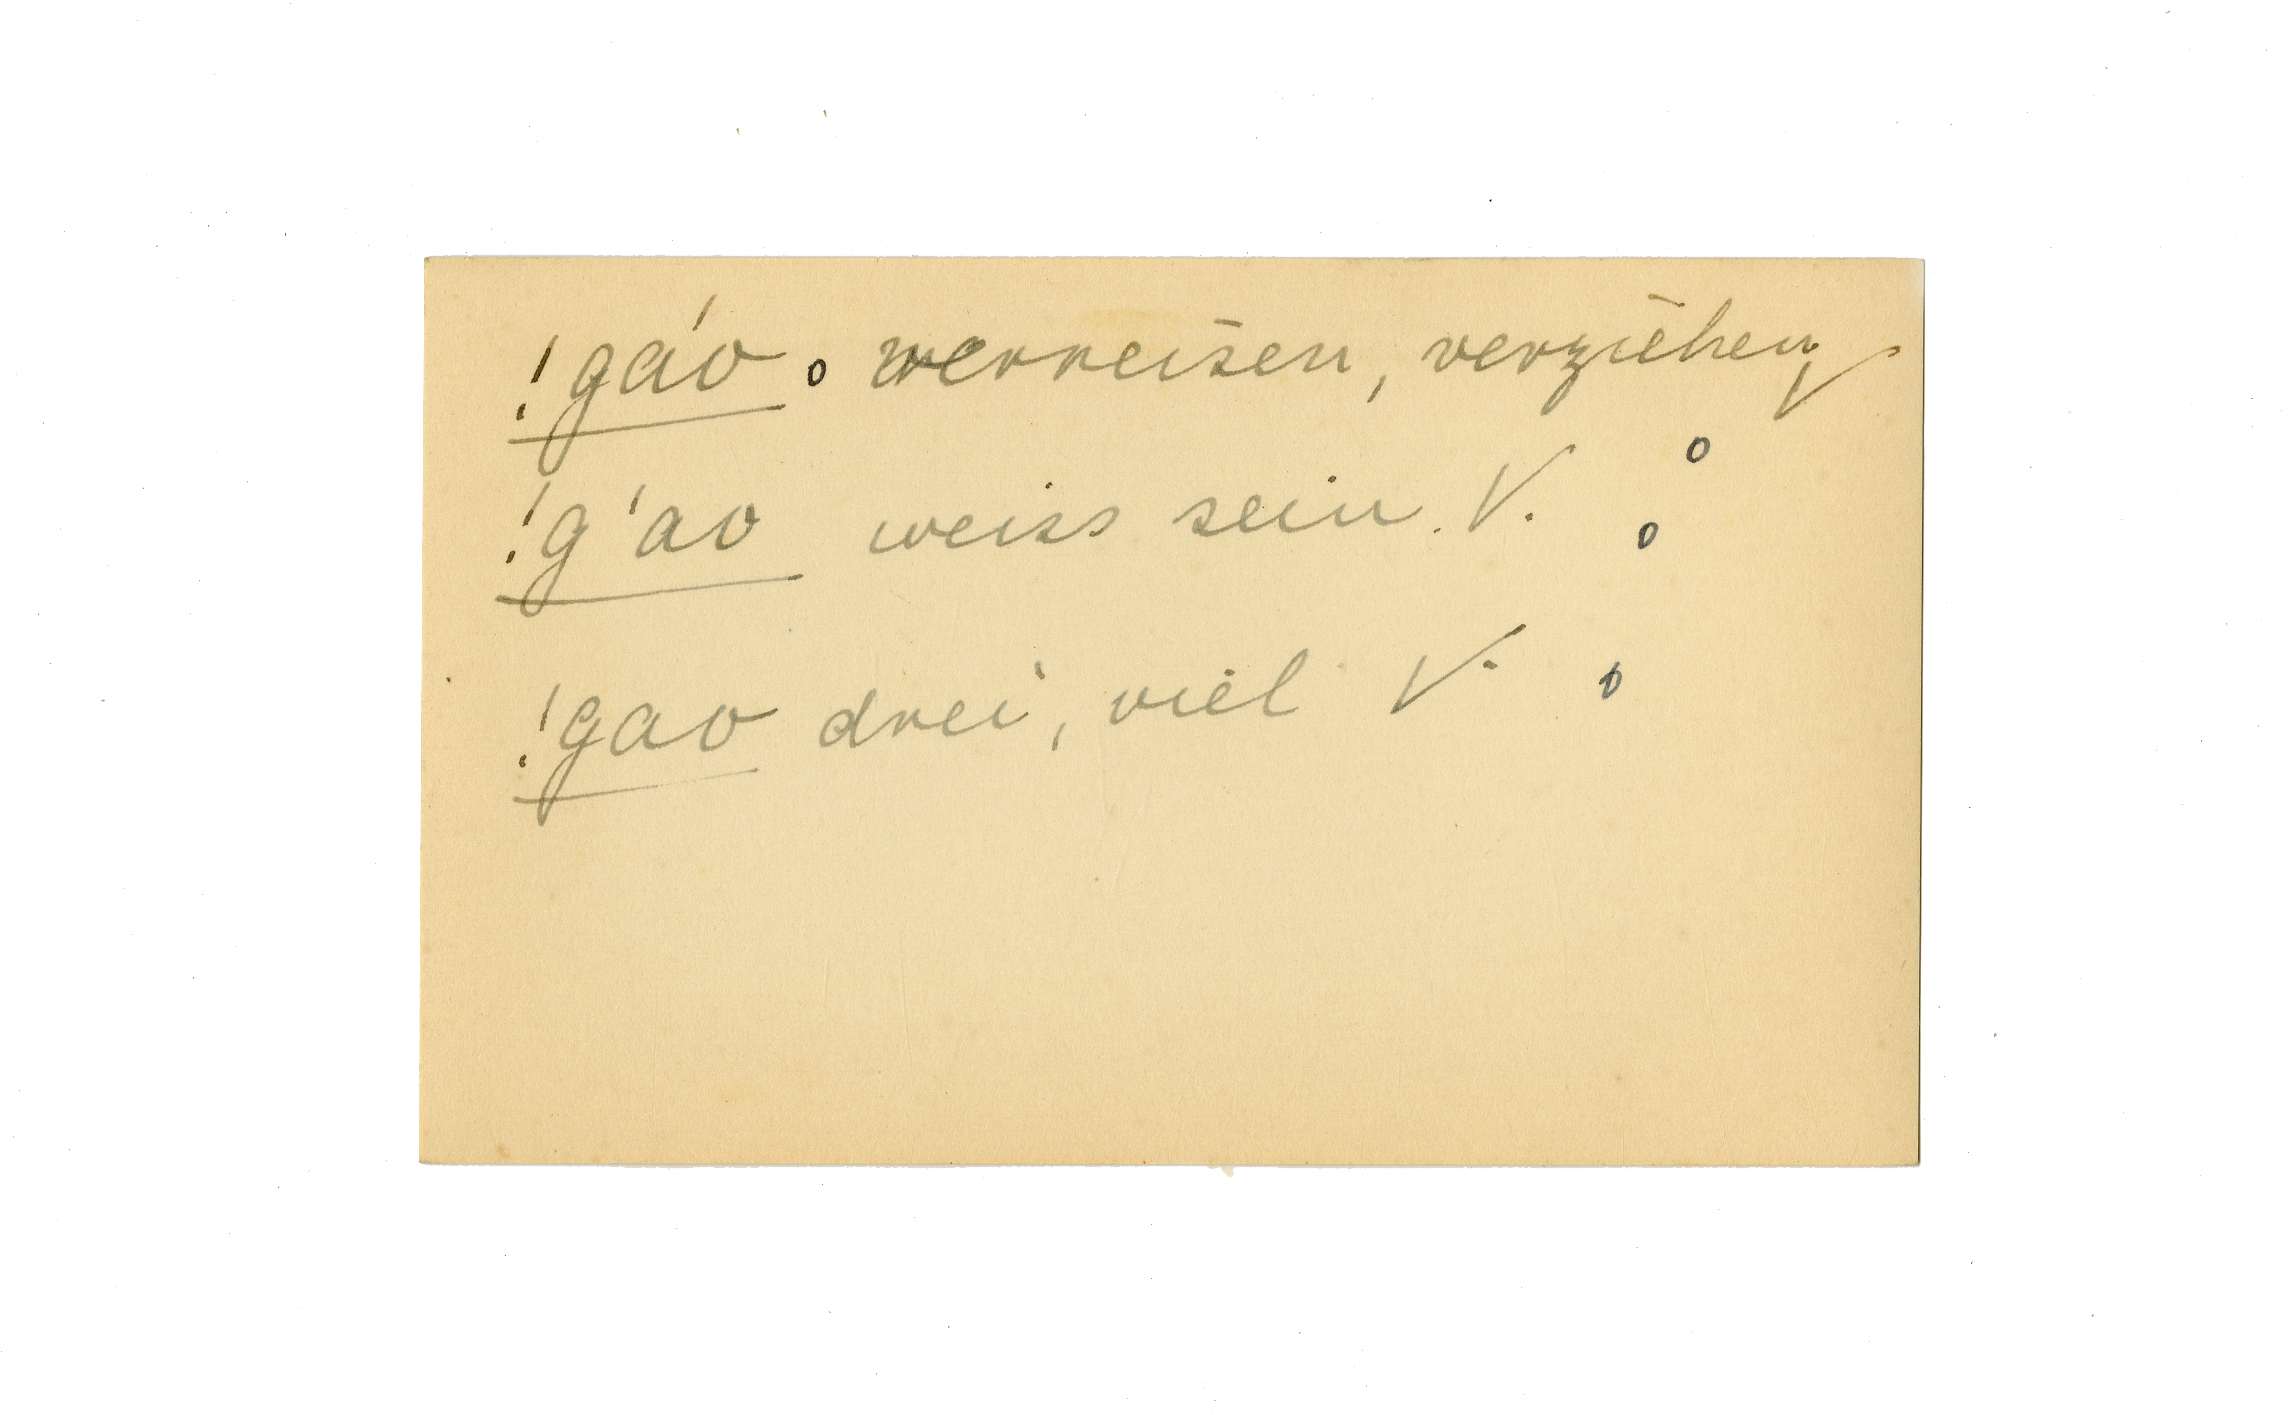 !gáo o verreisen, verziehen V
!g'ao weiss sein. V. o o
!gao drei, viel V. o